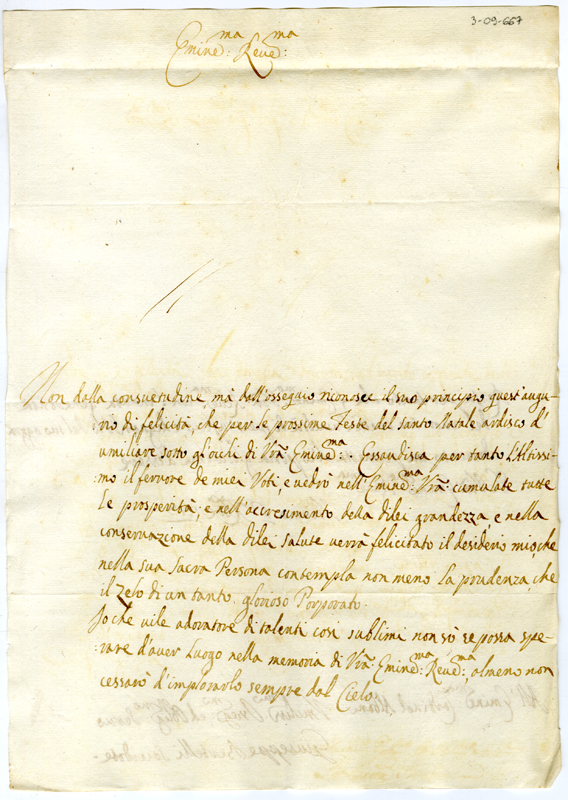 3-09-667
Emine:ma Reve:ma
Non dalla consuetudine mà dall'ossequio riconosce il suo principio quest'augu-
rio di felicità, che per le prossime Feste del santo Natale ardisco d'
umiliare sotto gl'occhi di Vra Emine:ma. Essaudisca per tanto l'Altissi-
mo il fervore de miei Voti, e vedrò nell'Emine:ma Vra cumulate tutte
le prosperità, e nell'accrescimento della dilei grandezza, e nella
conservazione della dilei salute verrà felicitato il desiderio mio, che
nella sua Sacra Persona contempla non meno la prudenza, che
il zelo di un tanto glorioso Porporato.
Io che vile adoratore di talenti così sublimi non sò se possa spe-
rare d'aver luogo nella memoria di Vra Emine:ma Reve:ma almeno non
cessarò d'implorarlo sempre dal Cielo